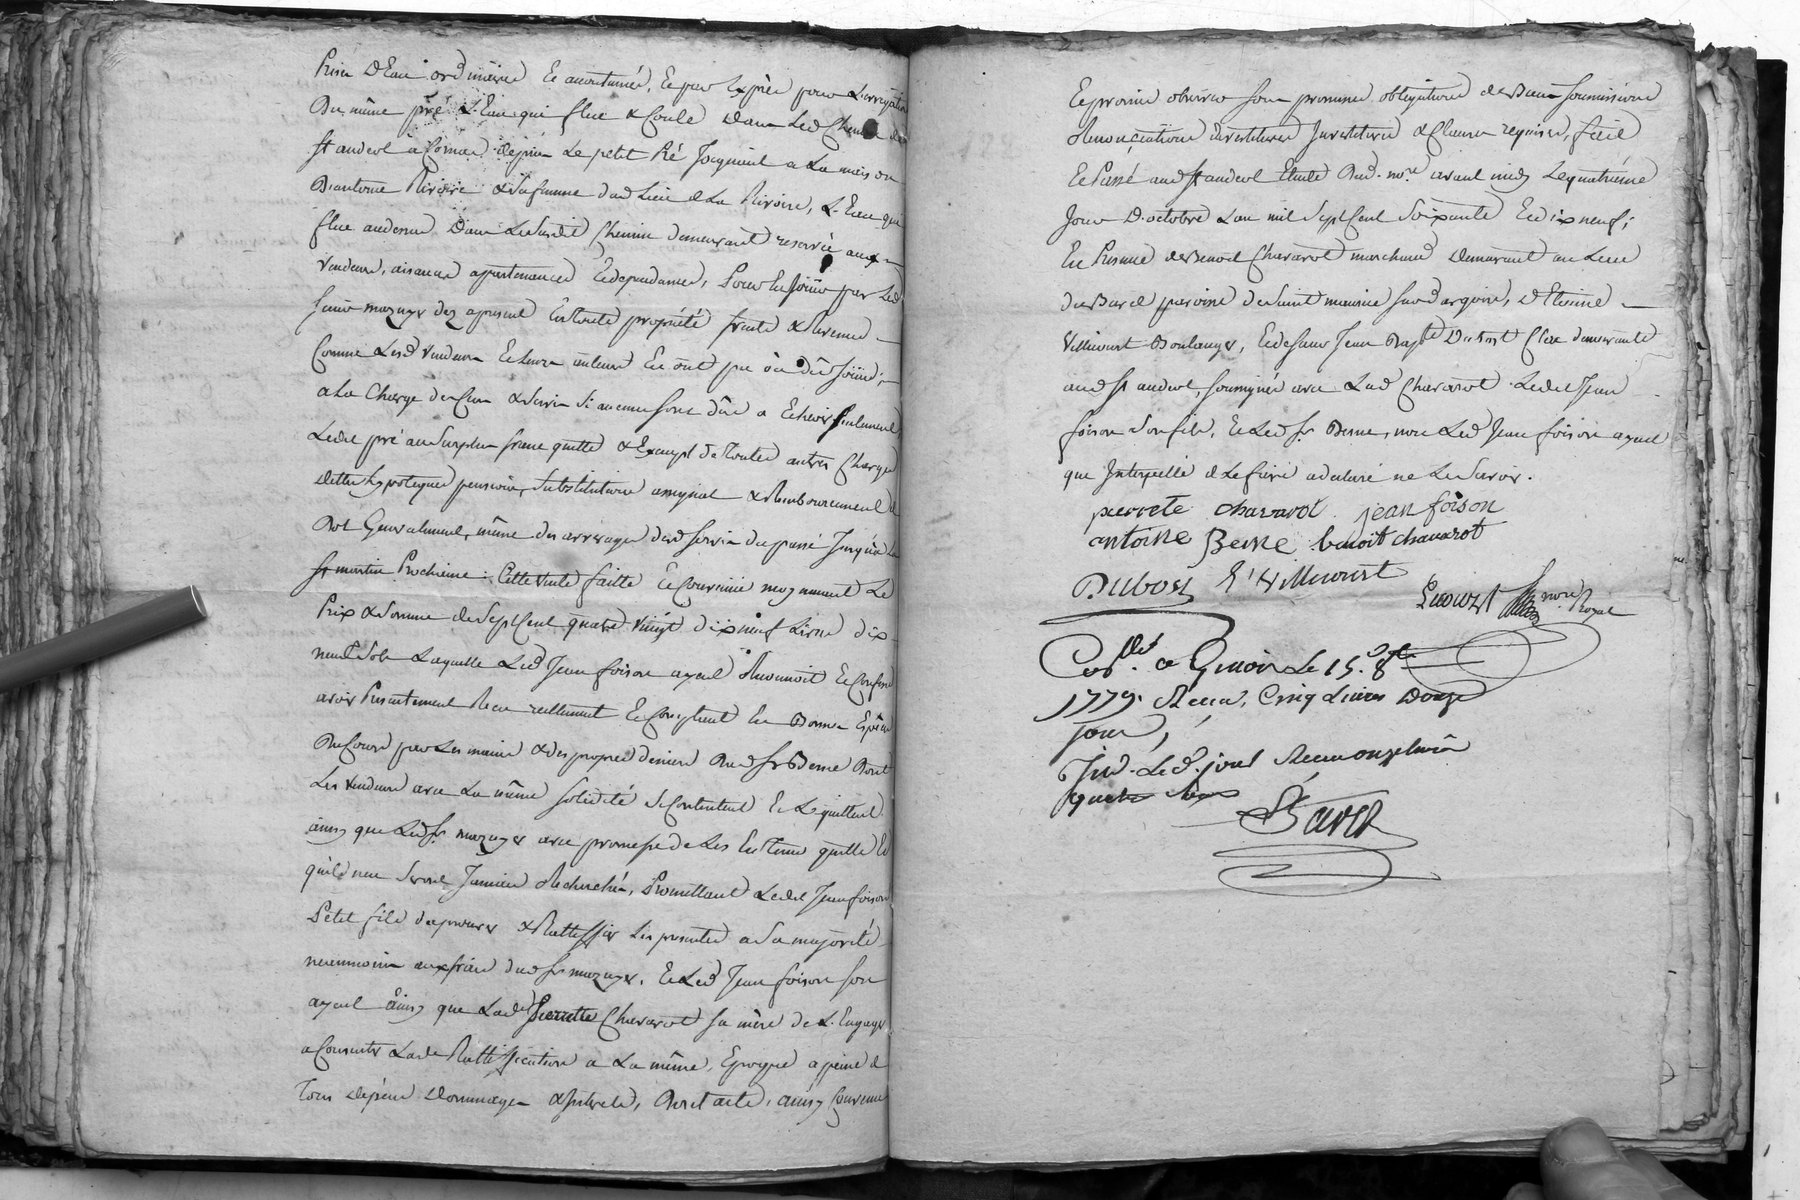 Prise D'Eau ordinaire Et accoutumée, Et par Exprès pour L'arrigation
Du même pré L'Eau qui flue & Coule Dans Led Chemin de
St andeol a Cornas depuis Le petit Pré Joignant a La maison
D'antoine Rivoire & Sa femme dud Lieu de La Rivoire, L'Eau qui
flue audessus Dans Le Susdit Chemin demeurant reservée aux
Vendeurs, aisances appartenances Et dependances, Pour En Joüir par Led
Sieur mazuyer dez apresent En Toute propriété fruits & Revenus
Comme Lesd Vendeurs Et Leurs auteurs En ont pu ou dû Joüir,
a La Charge des Cens & Servis Si aucuns sont dûs a Echeoir seulement
Ledit pré au Surplus franc quitte & Exempt de Toutes autres Charges
dettes hypoteques pensions, Substitutions assignat & Remboursement de
Dot Generalement, même des arrerages desd Servis du passé Jusqu'à La
St martin Prochaine : Cette Vente faitte Et Convenüe moyennant Le
Prix & Somme de Sept Cent quatre Vingt dix neuf Livres dix
neuf Sols Laquelle Led Jean foison ayeul Reconnoit Et Confesse
avoir Presentement Reçu reellement Et Comptant En Bonnes Espèces
Du Cours par Les mains & des propres deniers Dud Sr Berne Dont
Les Vendeurs avec La même Solidité Se Contentent Et L'quittent
ainsy que Led Sr mazuyer avec promesse de Les En Tenir quitte Et
qu'il n'en Seront Jamais Recherchés, Promettant Ledit Jean foison
Petit fils d'aprouver & Rattiffier Les presentes a Sa majorité
neanmoins aux frais dud Sr mazuyer, Et Led Jean foison son
ayeul ainsy que Ladte Pierrette Chavarot sa mère de L'Engager
a Consentir Lade Rattiffication a La même Epoque a peine de
Tous depens Dommages & Interets, Dont acte, ainsy Convenu
Et promis observer sous promesses obligations de Biens Soumissions
Renonciations devestitures Investitures & Clauses requises, fait
Et Passé aud St andeol Etude Dud. nore avant midy Le quatrieme
Jour D'octobre L'an mil Sept Cent Soixante Et dix neuf;
En Presence de Benoit Chavarot marchand Demeurant au Lieu
du Barel paroisse de Saint maurice Sur d'argoire, D'Etienne
Villecourt Boulanger, Et de Sieur Jean Bapte Dubost Clerc demeurants
aud St andeol, soussignés avec Lad Chavarot Ledit Jean
foison Son fils, Et Led Sr Berne, non Led Jean foison ayeul
que Interpellé de Le faire a declaré ne Le Savoir.
pierrete chavarot jean foison
antoine Berne benoit chavarot
Dubost E' Villecourt
nore Royal
Conlé a Givors Le 15. 8bre
1779. Receu, Cinq Livres Douze
Sous,
Ind. Led. jour Receu onze Livres
quatre Sous